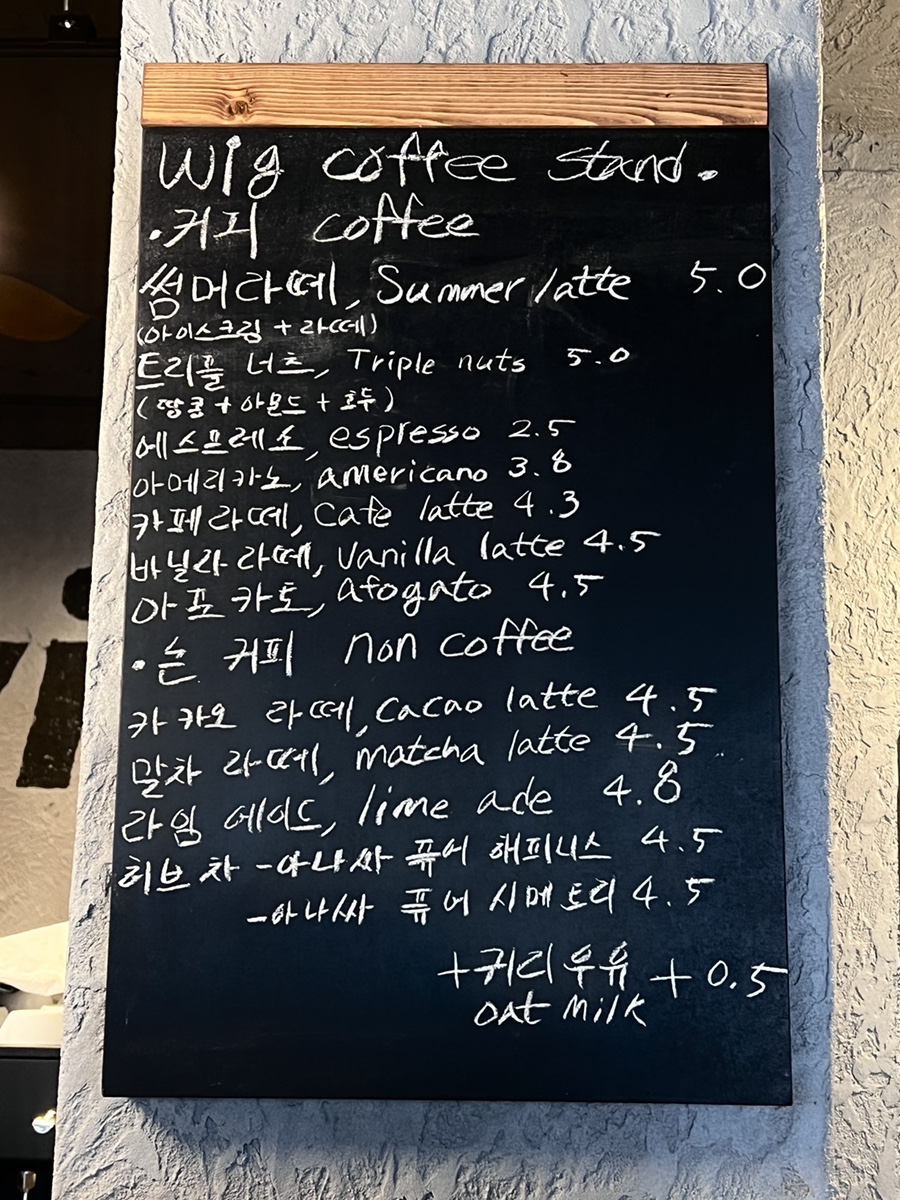 wig coffee stand.
·커피 coffee
썸머라떼, Summer latte 5.0
(아이스크림 + 라떼)
트리플 너츠, Triple nuts 5.0
(땅콩 + 아몬드 + 호두)
에스프레소, espresso 2.5
아메리카노, americano 3.8
카페라떼, Cafe latte 4.3
바닐라 라떼, Vanilla latte 4.5
아포카토, afogato 4.5
·논 커피 non coffee
카카오 라떼, cacao latte 4.5
말차 라떼, matcha latte 4.5
라임 에이드, lime ade 4.8
허브차 -아나싸 퓨어 해피니스 4.5
-아나싸 퓨어 시메트리 4.5
+귀리우유 +0.5
oat milk